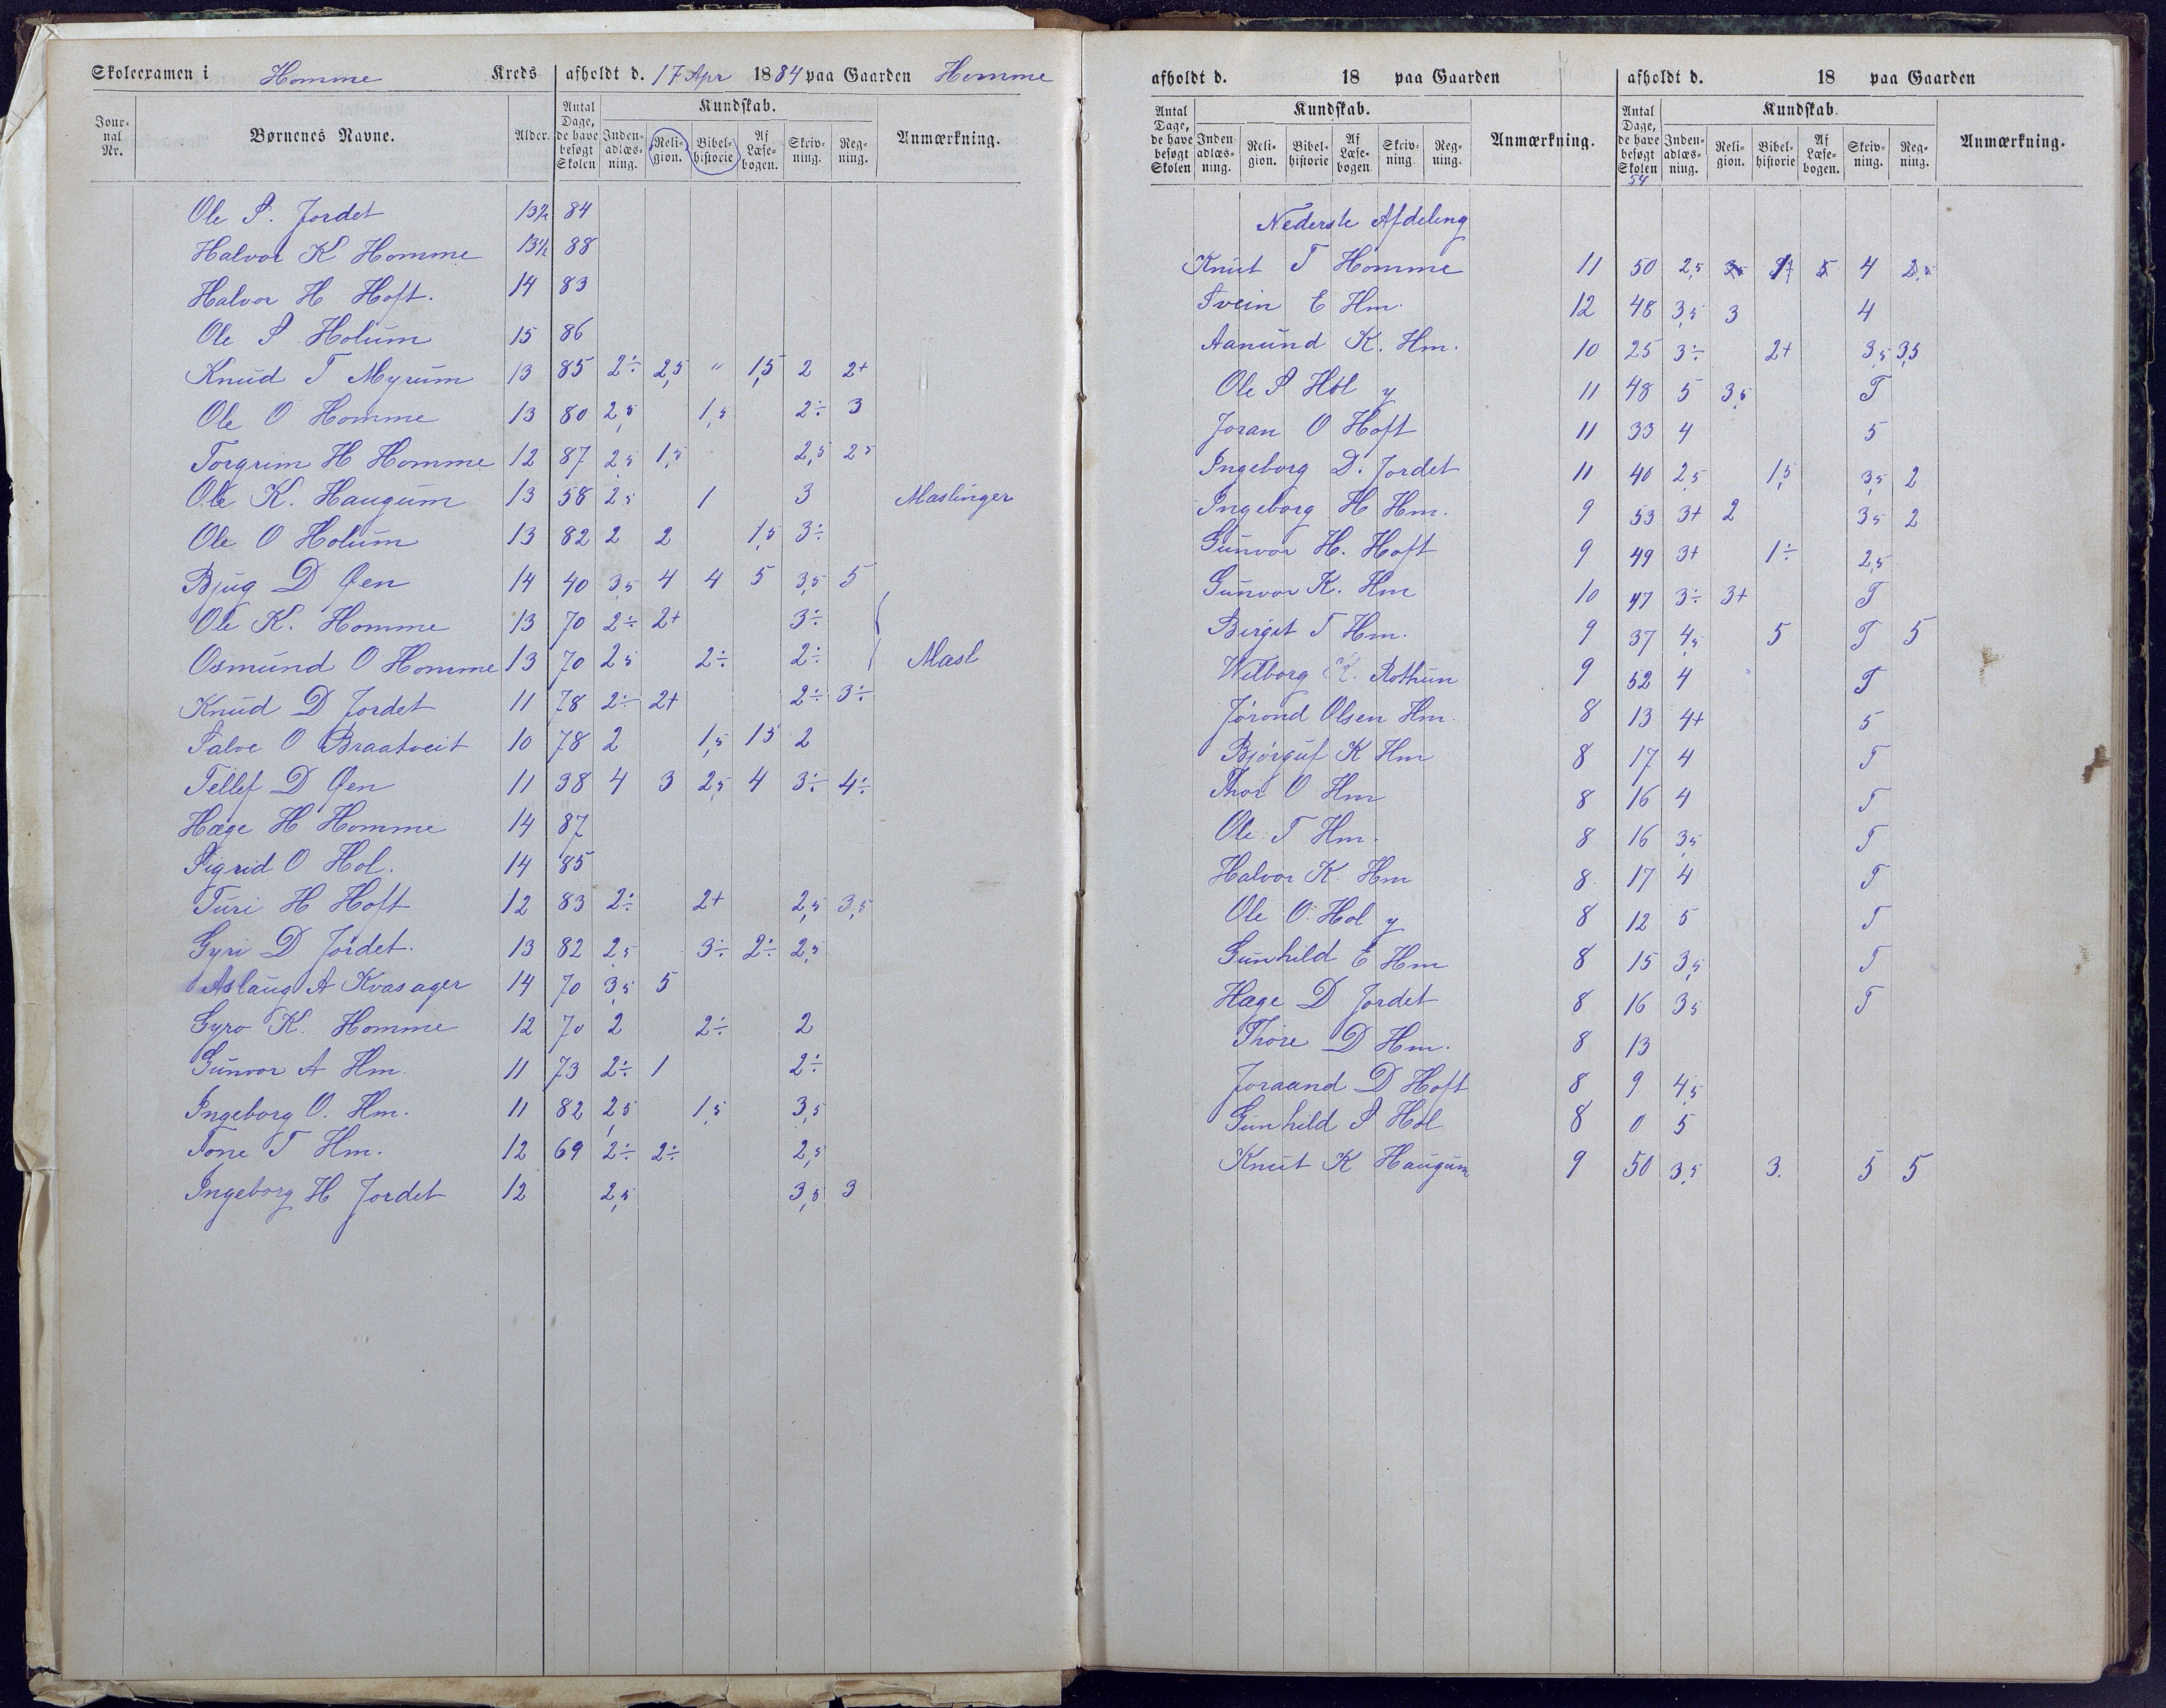 Skoleexamen i Homme Kreds afholdt d. 17 Apr 1884 paa Gaarden Homme
Jour-nal Nr. Børnenes Navne. Alder. Antal Dage, de have besøgt Skolen Kundskab. Inden-adlæs-ning. Reli-gion. Bibel-historie Af Læse-bogen. Skriv-ning. Reg-ning. Anmærkning.
Ole P. Jordet 13½ 84
Halvor K Homme 13½ 88
Halvor H Hoft. 14 83
Ole P Holum 15 86
Knud T Myrum 13 85 2÷ 2,5 " 1,5 2 2+
Ole O Homme 13 80 2,5 1,5 2÷ 3
Torgrim H Homme 12 87 2,5 1,5 2,5 25
Ole K. Haugum 13 58 2,5 1 3 Mæslinger
Ole O Holum 13 82 2 2 1,5 3÷
Bjug D Øen 14 40 3,5 4 4 5 3,5 5
Ole K. Homme 13 70 2÷ 2+ 3÷
Osmund O Homme 13 70 25 2÷ 2÷ Mæsl
Knud D Jordet 11 78 2÷ 2+ 2÷ 3÷
Salve O Braatveit 10 78 2 1,5 15 2
Tellef D Øen 11 38 4 3 2,5 4 3÷ 4÷
Hæge H Homme 14 87
Sigrid O Hol. 14 85
Turi H Hoft 12 83 2÷ 2+ 2,5 3,5
Gyri D Jordet. 13 82 2,5 3÷ 2÷ 2,5
Aslaug A Kvasager 14 70 3,5 5
Gyro K. Homme 12 70 2 2÷ 2
Gunvor A Hm. 11 73 2÷ 1 2÷
Ingeborg O. Hm. 11 82 2,5 1,5 3,5
Tone T Hm. 12 69 2÷ 2÷ 2,5
Ingeborg H Jordet 12 2,5 3,5 3
afholdt d. 18 paa Gaarden afholdt d. 18 paa Gaarden
Antal Dage, de have besøgt Skolen Kundskab. Inden-adlæs-ning. Reli-gion. Bibel-historie Af Læse-bogen. Skriv-ning. Reg-ning. Anmærkning. Antal Dage, de have besøgt Skolen Kundskab. Inden-adlæs-ning. Reli-gion. Bibel-historie Af Læse-bogen. Skriv-ning. Reg-ning. Anmærkning.
54
Nederste Afdeling
Knut T Homme 11 50 2,5 4
Svein E Hm. 12 48 3,5 3 4
Aanund K. Hm. 10 25 3÷ 2+ 3,5 3,5
Ole P Hol y 11 48 5 3,5 T
Joran O Hoft 11 33 4 5
Ingeborg D. Jordet 11 40 2,5 1,5 3,5 2
Ingeborg H Hm. 9 53 3+ 2 35 2
Gunvor H. Hoft 9 49 3+ 1÷ 2,5
Gunvor K. Hm 10 47 3÷ 3+ T
Birgit T Hm. 9 37 4,5 5 T 5
Wilborg K. Rothum 9 52 4 T
Jørond Olsen Hm. 8 13 4+ 5
Bjørguf K Hm 8 17 4 T
Thor O Hm 8 16 4 T
Ole T Hm. 8 16 3,5 T
Halvor K. Hm 8 17 4 T
Ole O. Hol y 8 12 5 T
Gunhild E Hm 8 15 3,5 T
Hæge D Jordet 8 16 35 T
Thore D Hm. 8 13
Joraand D Hoft 8 9 4,5
Gunhild P Hol 8 0 5
Knut K Haugum 9 50 3,5 3. 5 5